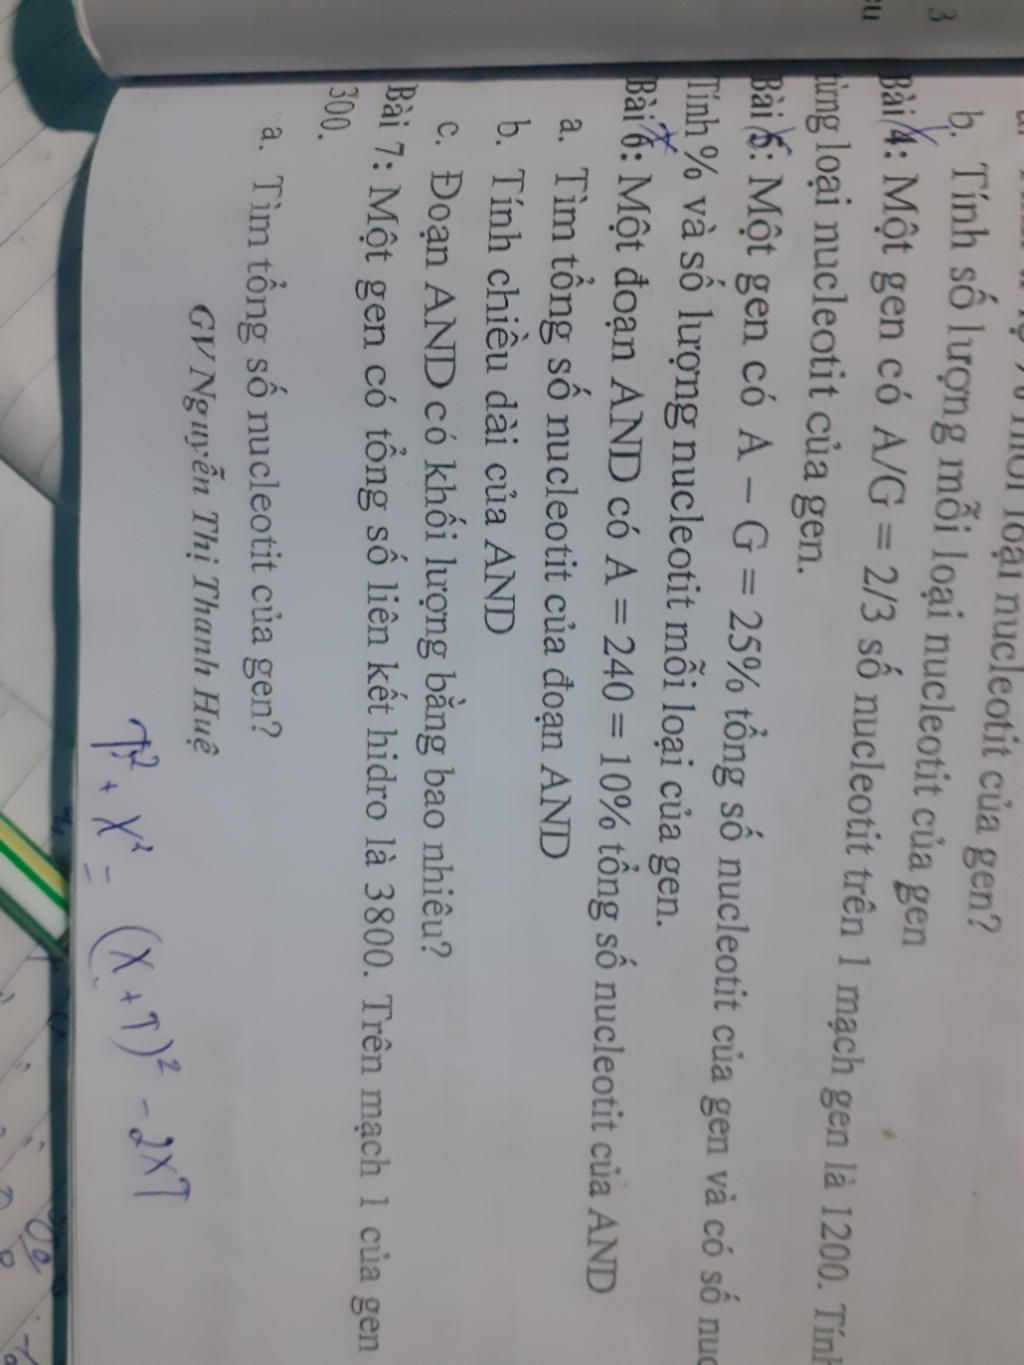 3
b. Tính số lượng mỗi loại nucleotit của gen
Bài 4: Một gen có A/G = 2/3 số nucleotit trên 1 mạch gen là 1200. Tính
từng loại nucleotit của gen.
Bài 5: Một gen có A – G = 25% tổng số nucleotit của gen và có số
Tính % và số lượng nucleotit mỗi loại của gen.
Bài 6: Một đoạn AND có A = 240 = 10% tổng số nucleotit của AND
a. Tìm tổng số nucleotit của đoạn AND
b. Tính chiều dài của AND
c. Đoạn AND có khối lượng bằng bao nhiêu?
Bài 7: Một gen có tổng số liên kết hidro là 3800. Trên mạch 1 của gen
300.
a. Tìm tổng số nucleotit của gen?
GV Nguyễn Thị Thanh Huệ
T² + X² = (X + T)² - 2XT